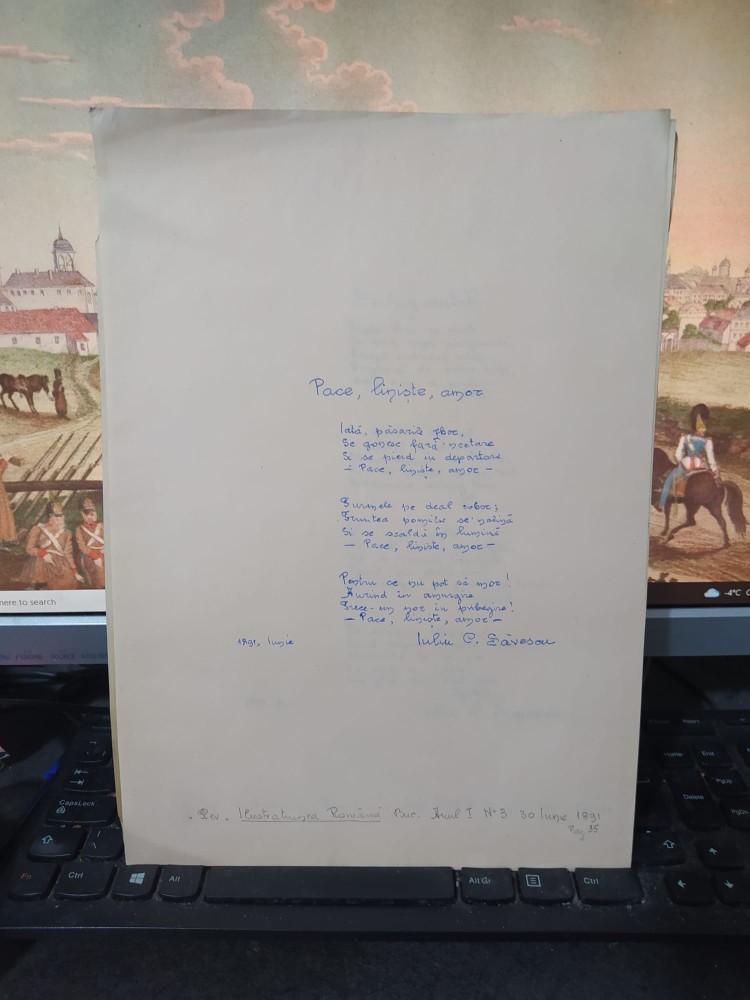 Pace, liniște, amor
Iată, păsările zbor,
Se gonesc fără 'ncetare
Și se pierd in depărtare
– Pace, liniște, amor –
Turmele pe deal cobor;
Fruntea pomilor se 'nclină
Si se scaldă în lumină
– Pace, liniște, amor –
Pentru ce nu pot să mor!
Aurind in amurgire
Trece-un nor in pribegire!
– Pace, liniște, amor –
1891, Iunie
Iuliu C. Săvescu
Rev. Ilustrațiunea Română Buc. Anul I Nº 3 30 Iunie 1891
Pag 35
here to search
-4°C
CapsLock
Fn
Ctrl
Alt
Alt Gr
Ctrl
Home
End
PgUp
Delete
PgDn
Insert